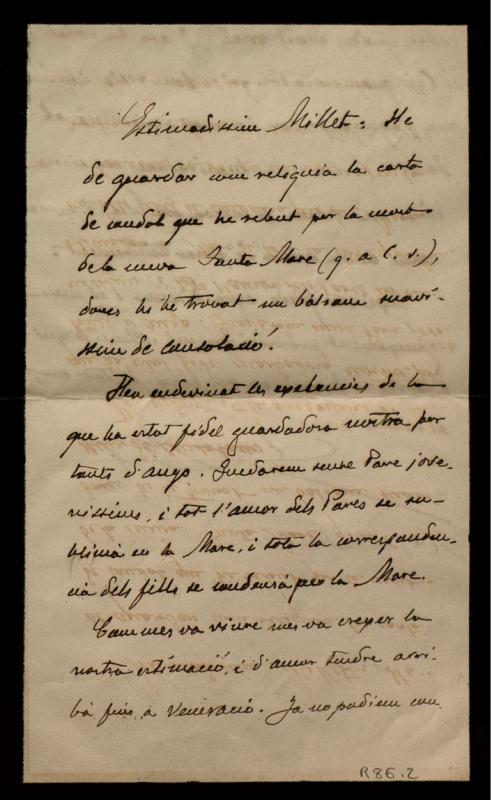 Estimadissim Millet: He
de guardar com reliquia la carta
de condol que he rebut per la mort
de la meva Santa Mare (q. a C. s.),
doncs hi he trovat un bàlsam suaví-
ssim de consolació.
Heu endevinat les excelencies de la
que ha estat fidel guardadora nostra per
tants d'anys. Quedarem sense Pare jove-
nissims, i tot l'amor dels Pares se su-
blimà en la Mare, i tota la corresponden-
cia dels fills se condensá per la Mare.
Com mes va viure mes va creixer la
nostra estimació, i d'amor tendre arri-
bà fins a veneració. Ja no podiem con
R86.2